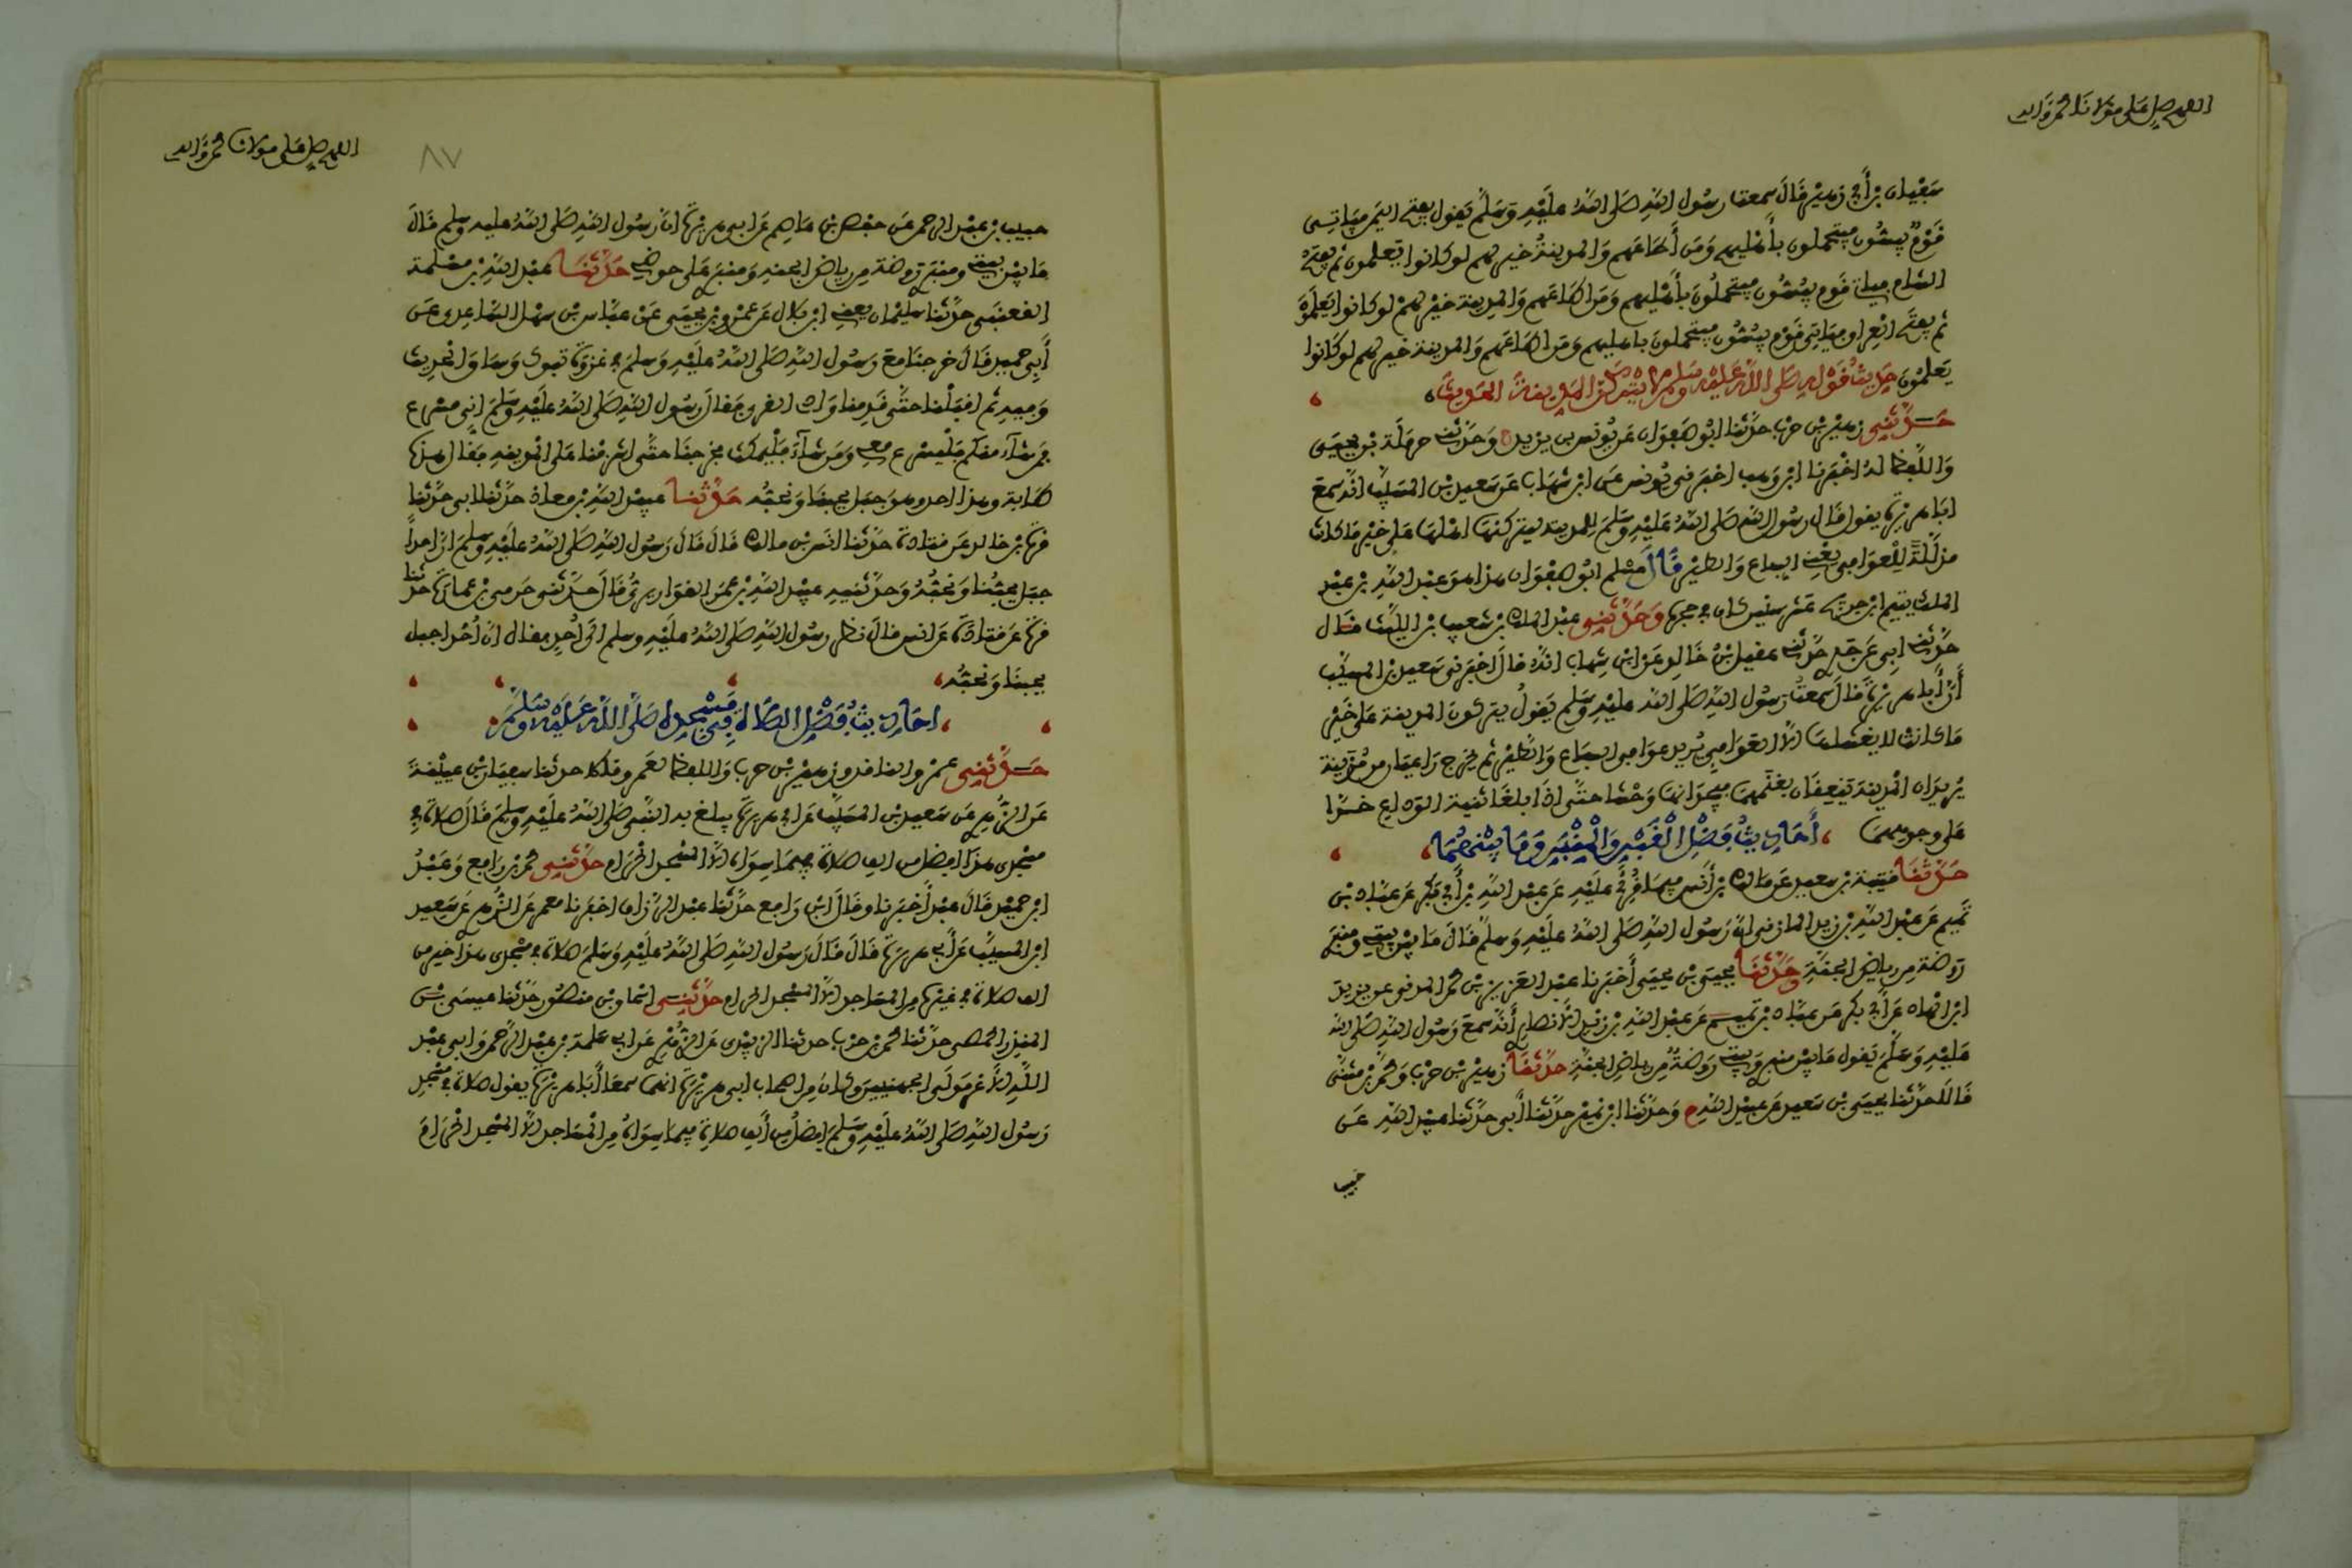 اللهم صل على مولانا محمد وآله
سفيان بن أبي زهير قال سمعت رسول الله صلى الله عليه وسلم يقول يفتح اليمن فياتي
قوم يبسون فيتحملون بأهليهم ومن أطاعهم والمدينة خير لهم لو كانوا يعلمون ثم يفتح
الشام فياتي قوم يبسون فيتحملون بأهليهم ومن أطاعهم والمدينة خير لهم لو كانوا يعلمون
ثم يفتح العراق فياتي قوم يبسون فيتحملون باهليهم ومن أطاعهم والمدينة خير لهم لو كانوا
يعلمون حديث قوله صلى الله عليه وسلم لا يتركن المدينة الحديث
حدثني زهير بن حرب حدثنا ابو صفوان عن يونس بن يزيد ح وحدثني حرملة بن يحيى
واللفظ له اخبرنا ابن وهب اخبرني يونس عن ابن شهاب عن سعيد بن المسيب انه سمع
ابا هريرة يقول قال رسول الله صلى الله عليه وسلم للمدينة ليتركنها اهلها على خير ما كانت
مذللة للعوافي يعني السباع والطير قال مسلم ابو صفوان هذا هو عبد الله بن عبد
الملك يتيم ابن جريج عشر سنين كان في حجره وحدثني عبد الملك بن شعيب بن الليث قال
حدثني ابي عن جدي حدثني عقيل بن خالد عن ابن شهاب انه قال اخبرني سعيد بن المسيب
أن أبا هريرة قال سمعت رسول الله صلى الله عليه وسلم يقول يتركون المدينة على خير
ما كانت لا يغشاها الا العوافي يريد عوافي السباع والطير ثم يخرج راعيان من مزينة
يريدان المدينة ينعقان بغنمهما فيجدانها وحشا حتى اذا بلغا ثنية الوداع خرا
على وجوههما أحاديث فضل القبر والمنبر وما بينهما
حدثنا قتيبة بن سعيد عن مالك بن أنس فيما قرئ عليه عن عبد الله بن أبي بكر عن عباد بن
تميم عن عبد الله بن زيد المازني ان رسول الله صلى الله عليه وسلم قال ما بين بيتي ومنبري
روضة من رياض الجنة وحدثنا يحيى بن يحيى أخبرنا عبد العزيز بن محمد المدني عن يزيد
ابن الهاد عن أبي بكر عن عباد بن تميم عن عبد الله بن زيد الانصاري أنه سمع رسول الله صلى الله
عليه وسلم يقول ما بين منبري وبيتي روضة من رياض الجنة حدثنا زهير بن حرب ومحمد بن مثنى
قالا حدثنا يحيى بن سعيد عن عبيد الله ح وحدثنا ابن نمير حدثنا أبي حدثنا عبيد الله عن
خبيب
اللهم صل على مولانا محمد وآله
٨٧
خبيب بن عبد الرحمن عن حفص بن عاصم عن ابي هريرة ان رسول الله صلى الله عليه وسلم قال
ما بين بيتي ومنبري روضة من رياض الجنة ومنبري على حوضي حدثنا عبد الله بن مسلمة
القعنبي حدثنا سليمان يعني ابن بلال عن عمرو بن يحيى عن عباس بن سهل الساعدي عن
أبي حميد قال خرجنا مع رسول الله صلى الله عليه وسلم في غزوة تبوك وساق الحديث
وفيه ثم اقبلنا حتى قدمنا وادي القرى فقال رسول الله صلى الله عليه وسلم إني مسرع
فمن شاء منكم فليسرع معي ومن شاء فليمكث فخرجنا حتى اشرفنا على المدينة فقال هذه
طابة وهذا احد وهو جبل يحبنا ونحبه حدثنا عبيد الله بن معاذ حدثنا ابي حدثنا
قرة بن خالد عن قتادة حدثنا انس بن مالك قال قال رسول الله صلى الله عليه وسلم ان احدا
جبل يحبنا ونحبه وحدثنيه عبيد الله بن عمر القواريري قال حدثني حرمي بن عمارة حدثنا
قرة عن قتادة عن انس قال نظر رسول الله صلى الله عليه وسلم الى أحد فقال ان أحدا جبل
يحبنا ونحبه
احاديث فضل الصلاة في مسجده صلى الله عليه وسلم
حدثني عمرو الناقد وزهير بن حرب واللفظ لعمرو قالا حدثنا سفيان بن عيينة
عن الزهري عن سعيد بن المسيب عن ابي هريرة يبلغ به النبي صلى الله عليه وسلم قال صلاة في
مسجدي هذا افضل من الف صلاة فيما سواه الا المسجد الحرام حدثني محمد بن رافع وعبد
ابن حميد قال عبد أخبرنا وقال ابن رافع حدثنا عبد الرزاق اخبرنا معمر عن الزهري عن سعيد
ابن المسيب عن أبي هريرة قال قال رسول الله صلى الله عليه وسلم صلاة في مسجدي هذا خير من
الف صلاة في غيره من المساجد الا المسجد الحرام حدثني اسحاق بن منصور حدثنا عيسى بن
المنذر الحمصي حدثنا محمد بن حرب حدثنا الزبيدي عن الزهري عن ابي سلمة بن عبد الرحمن وابي عبد
الله الأغر مولى الجهنيين وكان من اصحاب ابي هريرة انهما سمعا أبا هريرة يقول صلاة في مسجد
رسول الله صلى الله عليه وسلم افضل من ألف صلاة فيما سواه من المساجد الا المسجد الحرام